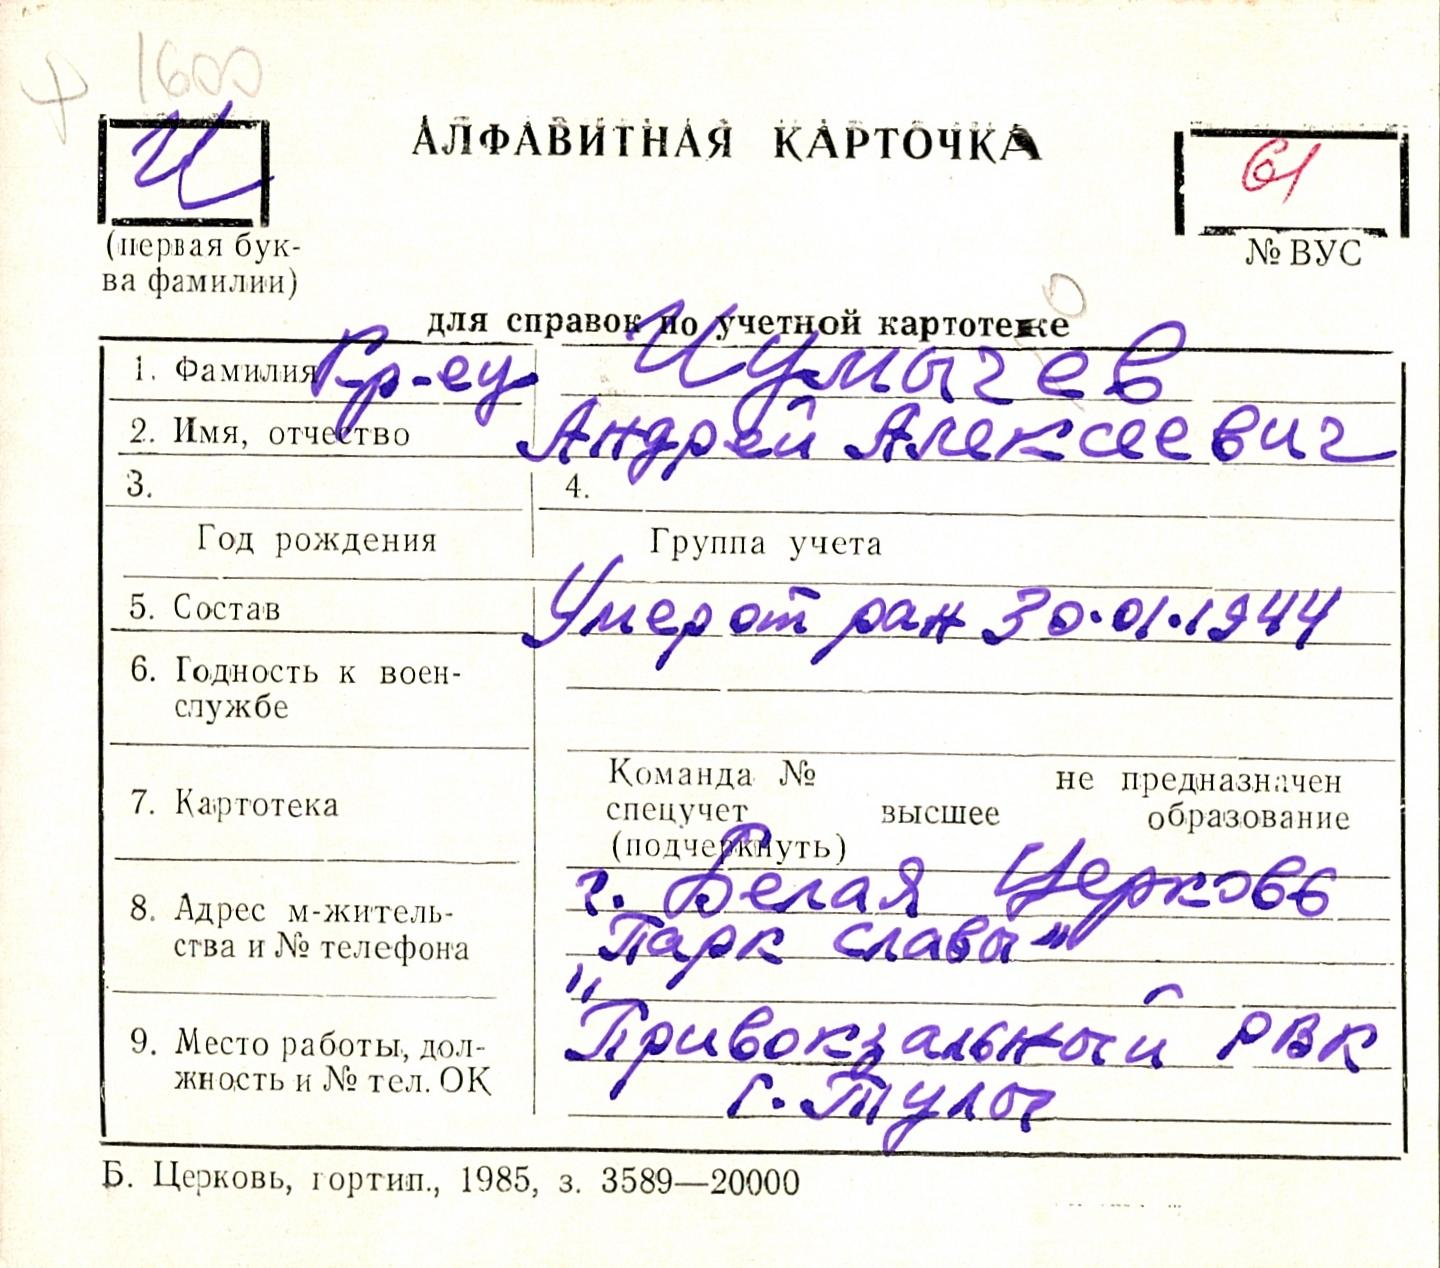 1600
И
АЛФАВИТНАЯ КАРТОЧКА
61
(первая бук-
ва фамилии)
№ ВУС
для справок по учетной картотеке
1. Фамилия Гр-ец
2. Имя, отчество Андрей Алексеевич
3. 4.
Год рождения Группа учета
5. Состав Умер от ран 30.01.1944
6. Годность к воен-
службе
Команда № не предназначен
7. Картотека спецучет высшее образование
(подчеркнуть)
8. Адрес м-житель- г. Белая Церковь
ства и № телефона "Парк славы"
9. Место работы, дол- "Привокзальный РВК
жность и № тел. ОК г. Тулы
Б. Церковь, гортип., 1985, з. 3589—20000